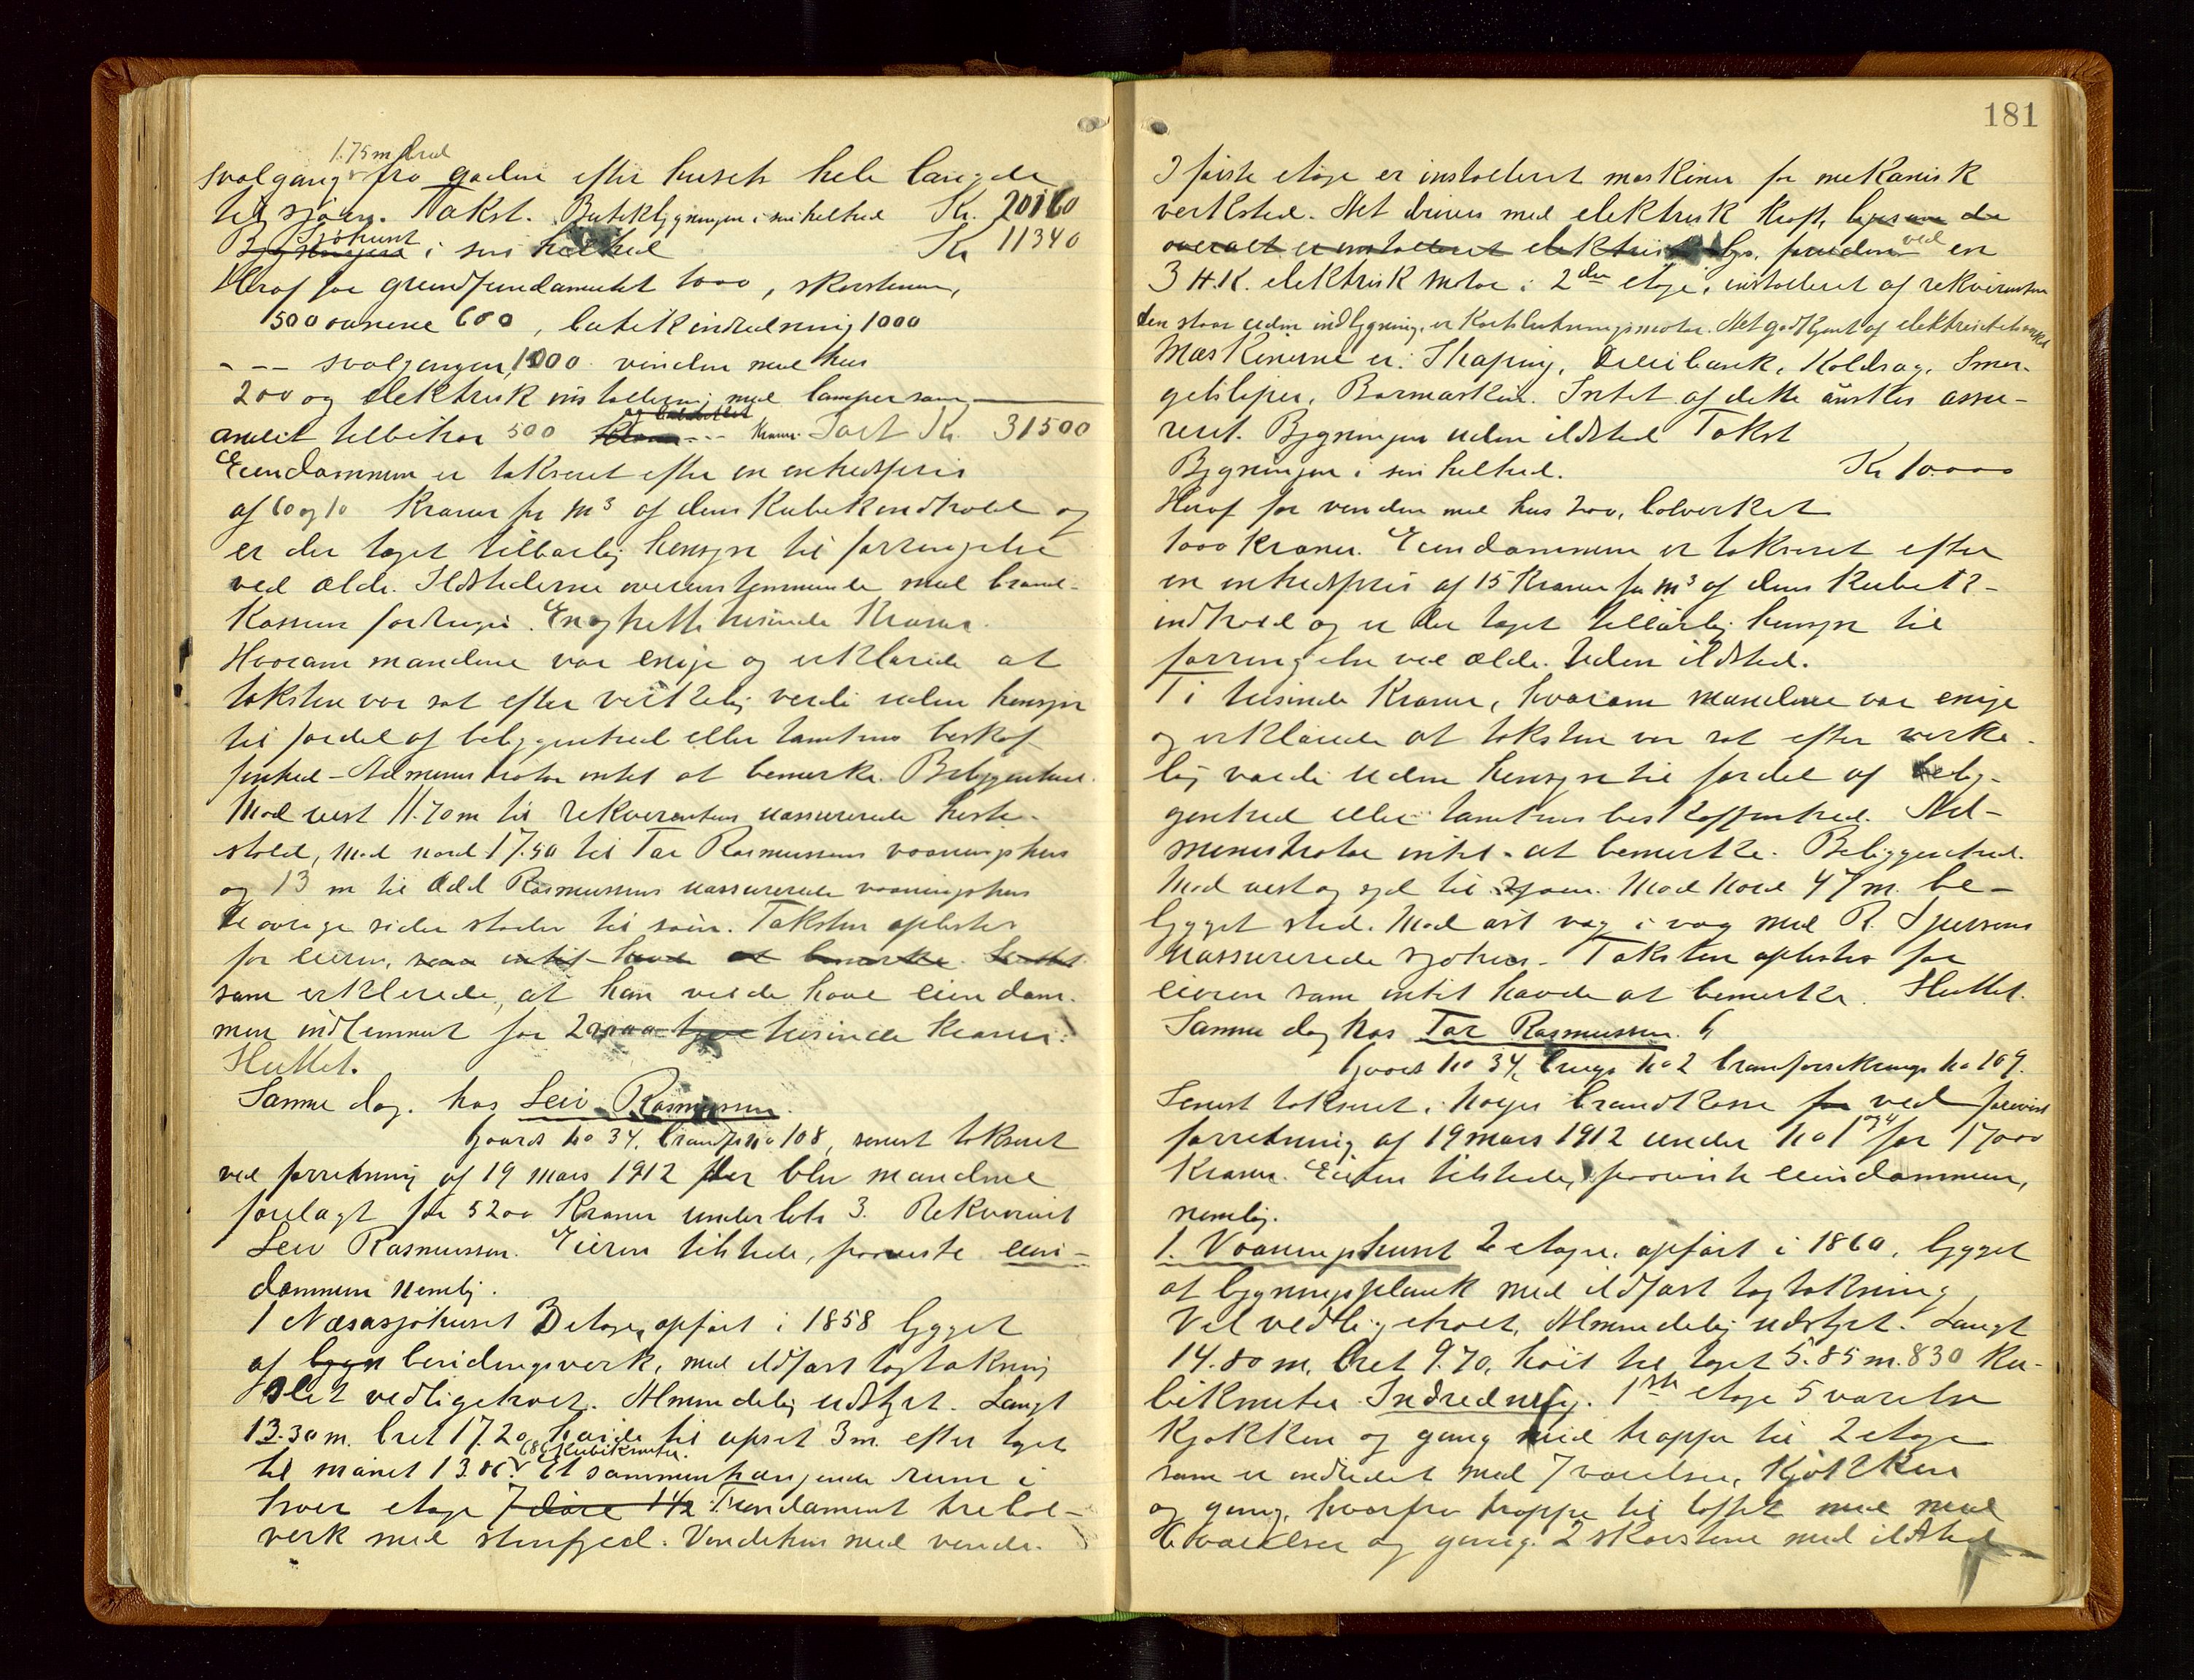 1.75 m bred
svalgang fra gaden efter husets hele længde
til sjøen. Takst. Butikbygningen i sin helhed Kr. 20160
Sjøhuset
Bygningen i sin helhed Kr 11340
Heraf for grundfundamentet 1000, skorstenen,
500 ovnene 600, butikindredning 1000
- -- svalgangen, 1000 vinden med hus
200 og elektrisk installering med lamper sam-
og ledetlet
andeit tilbehør 500 Kroner Sart Kr. 31500
Eiendommen er takseret efter en enhedspris
af 60 og 10 Kroner pr m³ af dens Kubikindhold og
er der taget tilbørlig hensyn til forringelse
ved ælde. Ildstederne overensstemmende med brand-
kassens fordringer. En og trette tusinde Kroner.
Hvorom mændene var enige og erklærede at
taksten var sat efter virkelig verdi uden hensyn
til fordel af beliggenhed eller tomtens beskaf-
fenhed - Administrator intet at bemerke. Beliggenhed.
Mod vest 11.70 m til rekvirentens uassurerede heste-
stald, mod nord 17.50 til Tor Rasmussens vaaningshus
og 13 m til Odd Rasmussens uassurerede vaaningshus
De øvrige sider støder til søen. Taksten oplæstes
for eieren, som intet havde at bemerke. Sluttet
som erklerede, at han vilde have eiendom-
men indlemmet for 2 tyve tusinde kroner.
Sluttet.
Samme dag. hos Leiv Rasmussen.
Gaards no 34, brandfs no 108, senest takseret
ved forretning af 19 mars 1912 der blev mændene
forelagt for 5200 Kroner under litr 3. Rekvirent
Leiv Rasmussen. Eieren tilstede, forviste eien-
dommen nemlig.
1 Næsasjøhuset 3 etager, opført i 1858 bygget
af bygn bindingsverk, med ildfast tagtækning
Slet vedligeholt. Almindelig udstyret. Langt
13.30 m. bret 17.20, høide til opset 3 m. efter taget
686 Kubikmeter.
til mønet 13.00. Et sammenhængende rum i
hver etage 7 døre 14/2 Fundament trebol-
verk med stenfyld. Vindehus med vinde.
181
I første etage er installeret maskiner for mekanisk
verksted. Det drives med elektrisk kraft, ligesom der
overalt er installeret elektrisk lys, foruden ved en
3 H.K. elektrisk motor i 2den etage, installeret af rekvirenten
den staar uden indbygning, er Kortslutningsmotor. Det godkjent af elektricitetsverket
Maskinerne er: Shaping, Dreibank, Koldsag, Smer-
gelsliper, Bormaskin. Intet af dette ønskes assu-
reret. Bygningen uden ildsted Takst
Bygningen i sin helhed. Kr 10.000
Heraf for vinden med hus 200, bolverket
1000 kroner. Eiendommen er takseret efter
en enhedspris af 15 Kroner pr m³ af dens Kubik-
indhold og er der taget tilbørlig hensyn til
forringelse ved ælde. Uden ildsted.
Ti tusinde Kroner, hvorom mændene var enige
og erklærede at taksten var sat efter virke-
lig værdi uden hensyn til fordel af belig-
genhed eller tomtens beskaffenhed. Ad-
ministrator intet at bemerke. Beliggenhed.
Mod vest og syd til sjøen. Mod nord 47 m. be-
bygget sted. Mod øst væg i væg med R. Sjursens
uassurerede sjøhus. Taksten oplæstes for
eieren som intet havde at bemerke. Sluttet.
Samme dag hos Tor Rasmussen. G
Gaards no 34, brugs no 2 branforsikrings no 109.
Senest takseret i Norges brandkasse for ved forevist
forretning af 19 mars 1912 under no 1 og 4 for 17000
Kroner. Eieren tilstede, forviste eiendommen,
nemlig.
1. Vaaningshuset 2 etager, opført i 1860, bygget
af bygningsplank med ildfast tagtækning
Vel vedligeholt, Almindelig udstyret. Langt
14.80 m, bret 9.70, høit til taget 5.85 m. 830 Ku-
bikmeter Indredning. 1ste etage 5 værelser
Kjøkken og gang med trappe til 2 etage
som er indredet med 7 værelser, Kjøkken
og gang, hvorfra trappe til loftet med med
6 værelser og gang. 2 skorstene med ildsted